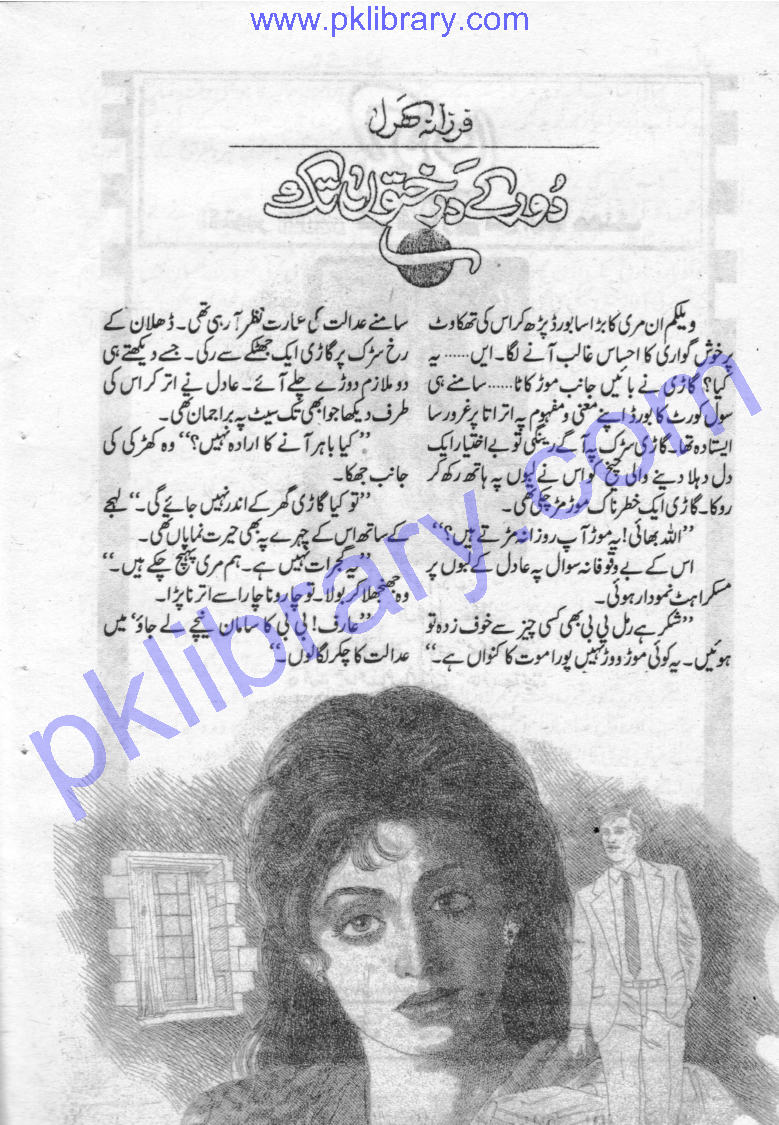 www.pklibrary.com
فرزانہ کھرل
دُور کے دَرختوں تک
ویلکم ان مری کا بڑا سا بورڈ پڑھ کر اس کی تھکاوٹ
پر خوش گواری کا احساس غالب آنے لگا۔ ایں..... یہ
کیا؟ گاڑی نے بائیں جانب موڑ کاٹا..... سامنے ہی
سول کورٹ کا بورڈ اپنے معنی و مفہوم پہ اتراتا پر غرور سا
ایستادہ تھا۔ گاڑی سڑک پہ آگے رینگی تو بے اختیار ایک
دل دہلا دینے والی چیخ کو اس نے لبوں پہ ہاتھ رکھ کر
روکا۔ گاڑی ایک خطرناک موڑ مڑ چکی تھی۔
”اللہ بھائی! یہ موڑ آپ روزانہ مڑتے ہیں؟“
اس کے بے وقوفانہ سوال پہ عادل کے لبوں پر
مسکراہٹ نمودار ہوئی۔
”شکر ہے رمل بی بی بھی کسی چیز سے خوف زدہ تو
ہوئیں۔ یہ کوئی موڑ ووڑ نہیں پورا موت کا کنواں ہے۔“
سامنے عدالت کی عمارت نظر آ رہی تھی۔ ڈھلان کے
رخ سڑک پر گاڑی ایک جھٹکے سے رکی۔ جسے دیکھتے ہی
دو ملازم دوڑے چلے آئے۔ عادل نے اتر کر اس کی
طرف دیکھا جو ابھی تک سیٹ پہ براجمان تھی۔
”کیا باہر آنے کا ارادہ نہیں؟“ وہ کھڑکی کی
جانب جھکا۔
”تو کیا گاڑی گھر کے اندر نہیں جائے گی۔“ لہجے
کے ساتھ اس کے چہرے پہ بھی حیرت نمایاں تھی۔
”یہ گجرات نہیں ہے۔ ہم مری پہنچ چکے ہیں۔“
وہ جھنجھلا کر بولا۔ تو چار و ناچار اسے اترنا پڑا۔
”عارف! بی بی کا سامان نیچے لے جاؤ‘ میں
عدالت کا چکر لگا لوں۔“
pklibrary.com